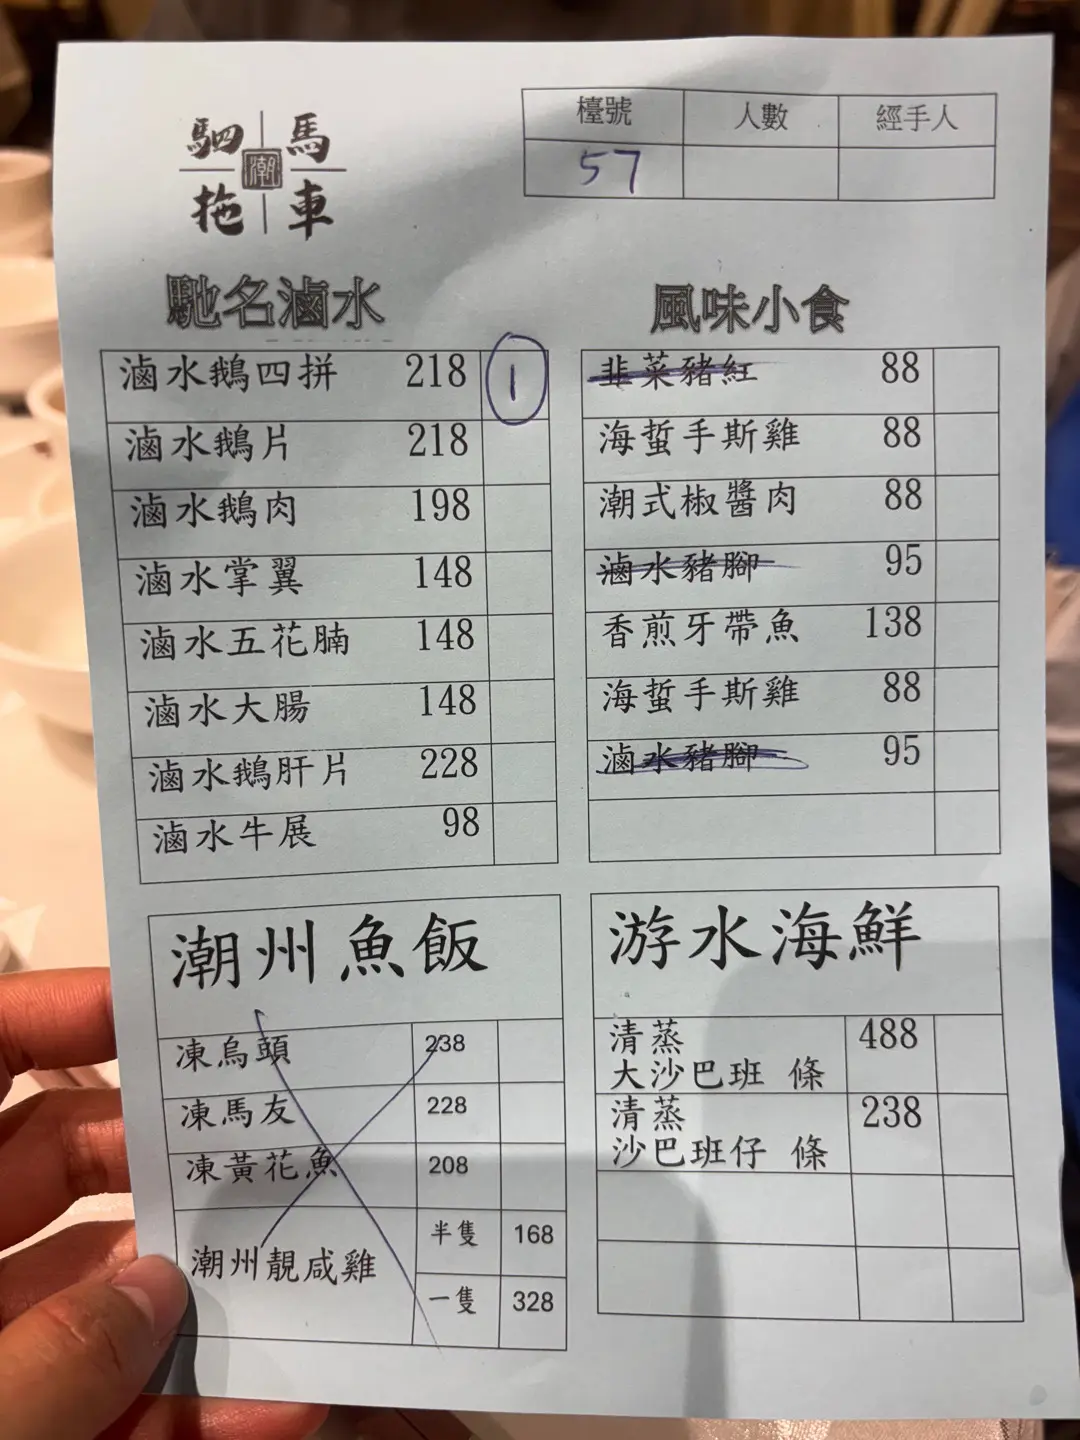 駟馬
潮
拖車
檯號 人數 經手人
57
馳名滷水
滷水鵝四拼 218 1
滷水鵝片 218
滷水鵝肉 198
滷水掌翼 148
滷水五花腩 148
滷水大腸 148
滷水鵝肝片 228
滷水牛展 98
風味小食
韭菜豬紅 88
海蜇手斯雞 88
潮式椒醬肉 88
滷水豬腳 95
香煎牙帶魚 138
海蜇手斯雞 88
滷水豬腳 95
潮州魚飯
凍烏頭 238
凍馬友 228
凍黃花魚 208
潮州靚咸雞 半隻 168
一隻 328
游水海鮮
清蒸 488
大沙巴班 條
清蒸 238
沙巴班仔 條